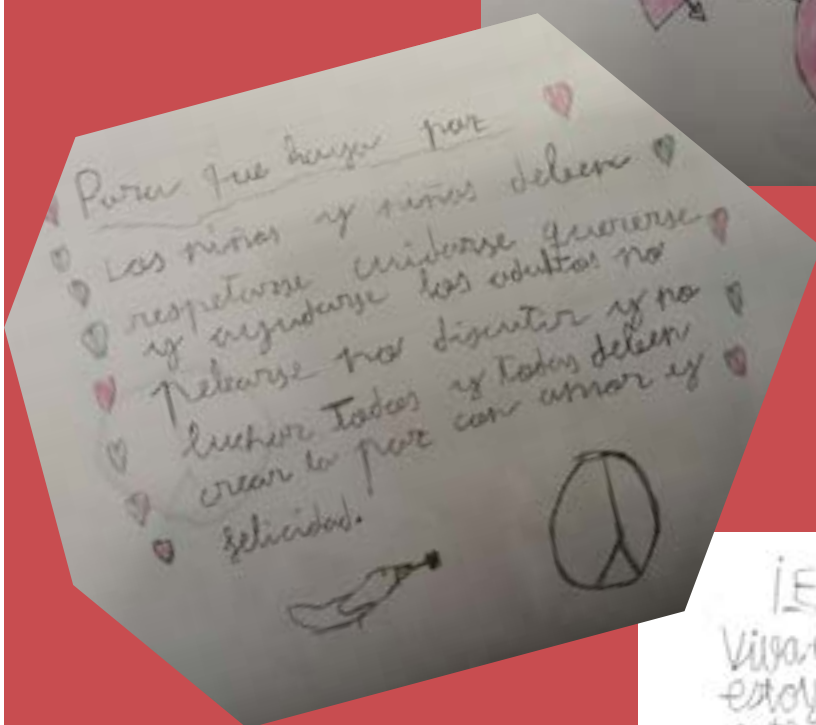 Para que haya paz
Los niños y niñas deben
respetarse cuidarse quererse
y ayudarse los adultos no
pelearse no discutir y no
luchar Todos y Todas deben
crear la paz con amor y
felicidad.
Viva
estoy